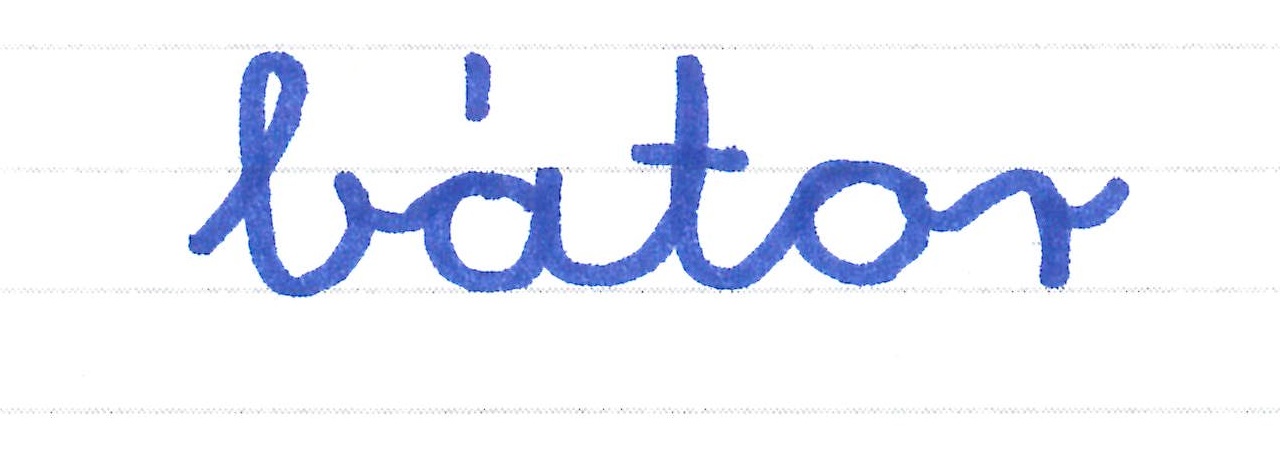 bátor